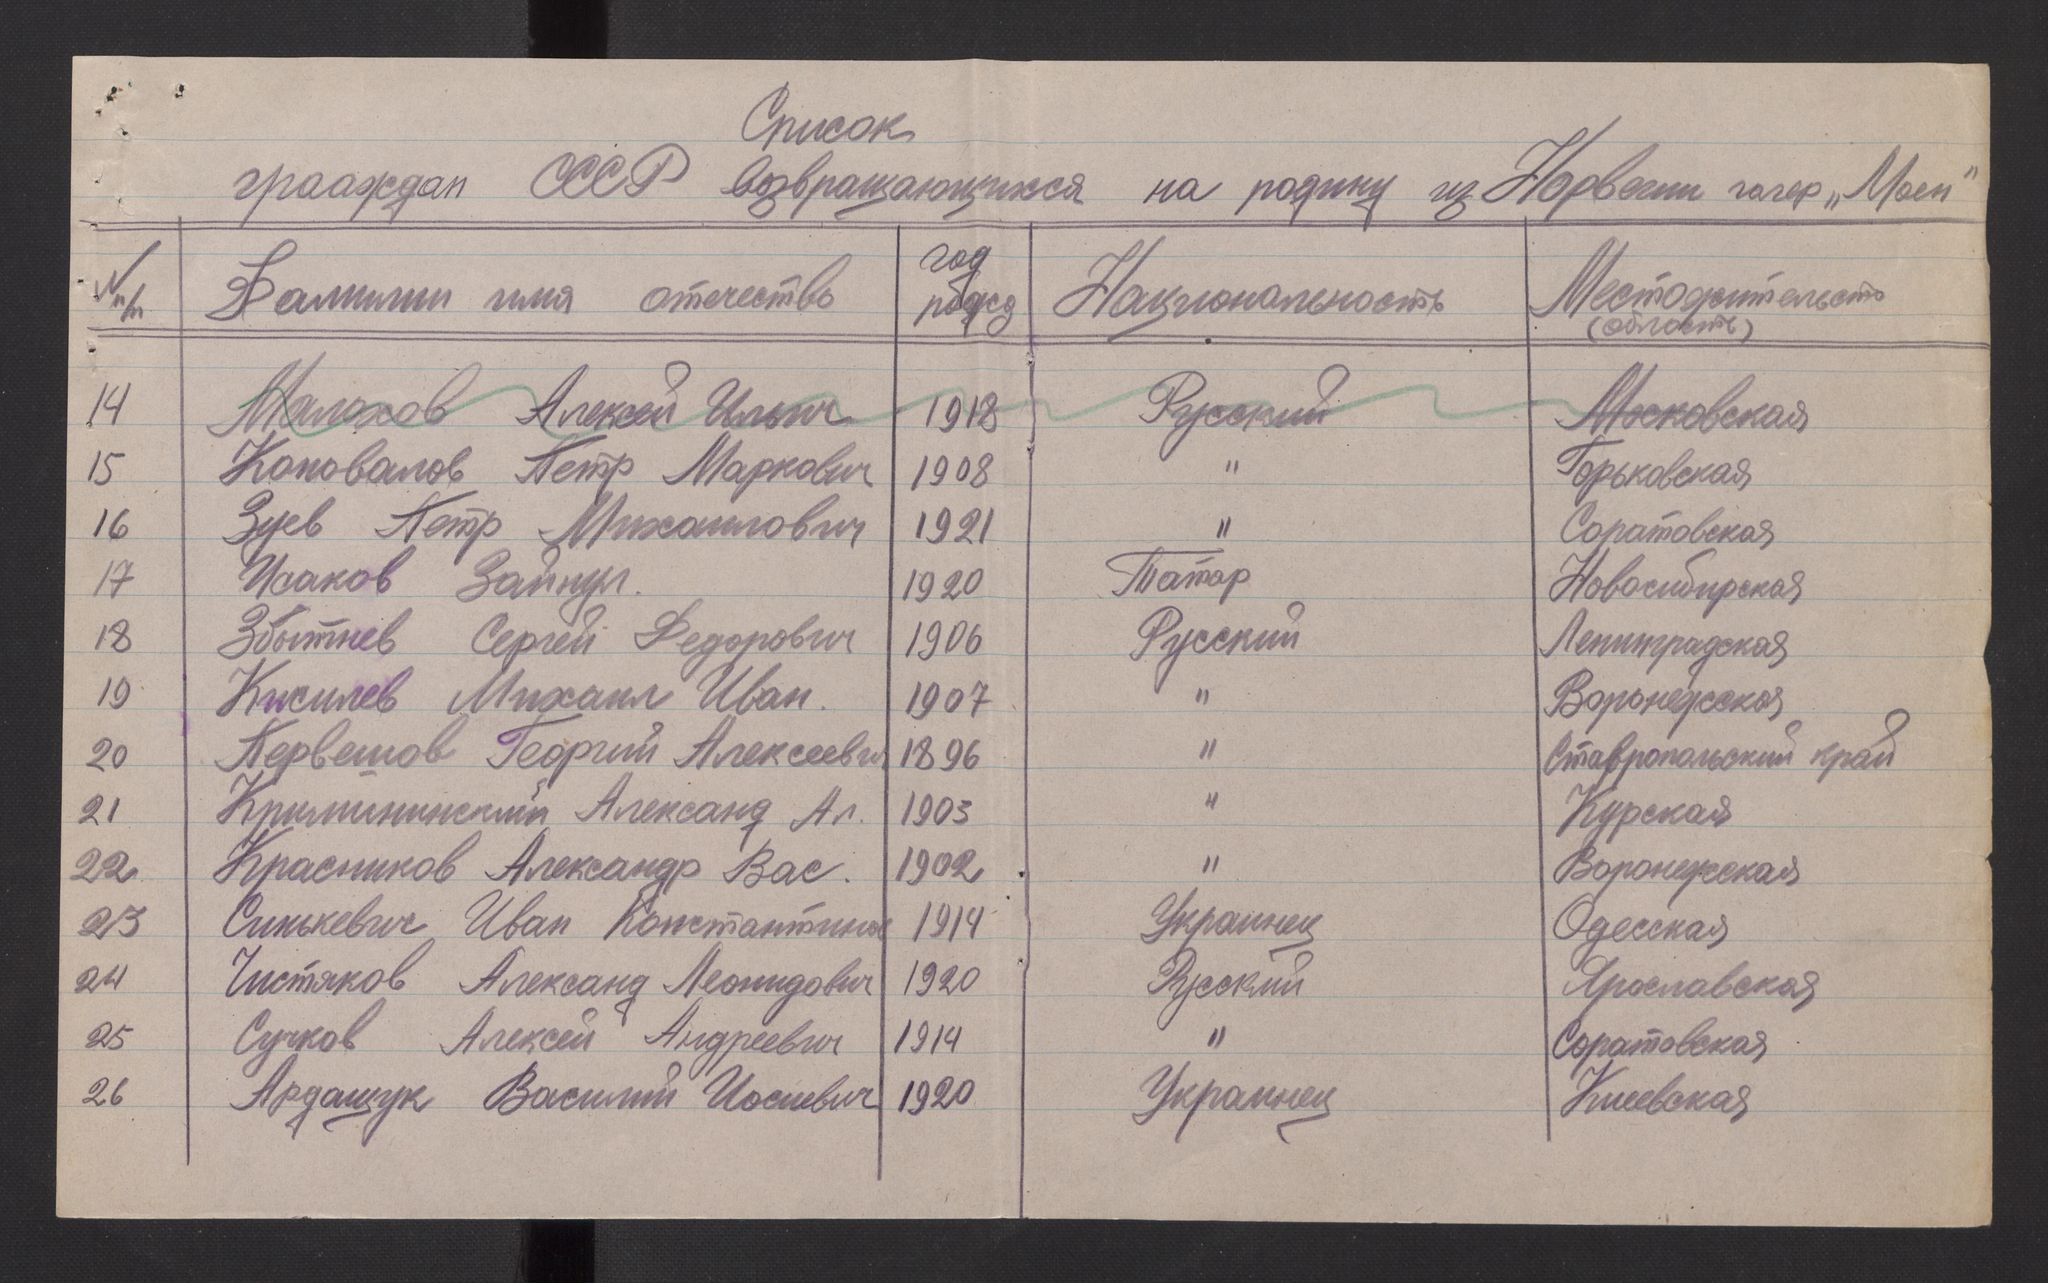 Список
грааждан СССР возвращающихся на родину из Норвегии лагер „Моен"
№ п/п Фамилии имя отечество год рожд Национальность Местожительсто (область)
14 Малахов Алексей Ильич 1918 Русский Московская
15 Коновалов Петр Маркович 1908 " Горьковская
16 Зуев Петр Михаилович 1921 " Соратовская
17 Исаков Зайнул. 1920 Татар Новосибирская
18 Збытнев Сергей Федорович 1906 Русский Ленинградская
19 Кисилев Михаил Иван. 1907 " Воронежская
20 Первешов Георгий Алексеевич 1896 " Ставропольский край
21 Александ Ал. 1903 " Курская
22 Красников Александр Вас. 1902 " Воронежская
23 Синькевич Иван Константинов 1914 Украинец Одесская
24 Чистяков Александ Леонидович 1920 Русский Ярославская
25 Сучков Алексей Андреевич 1914 " Соратовская
26 Ардащук Василий Иосиевич 1920 Украинец Киевская